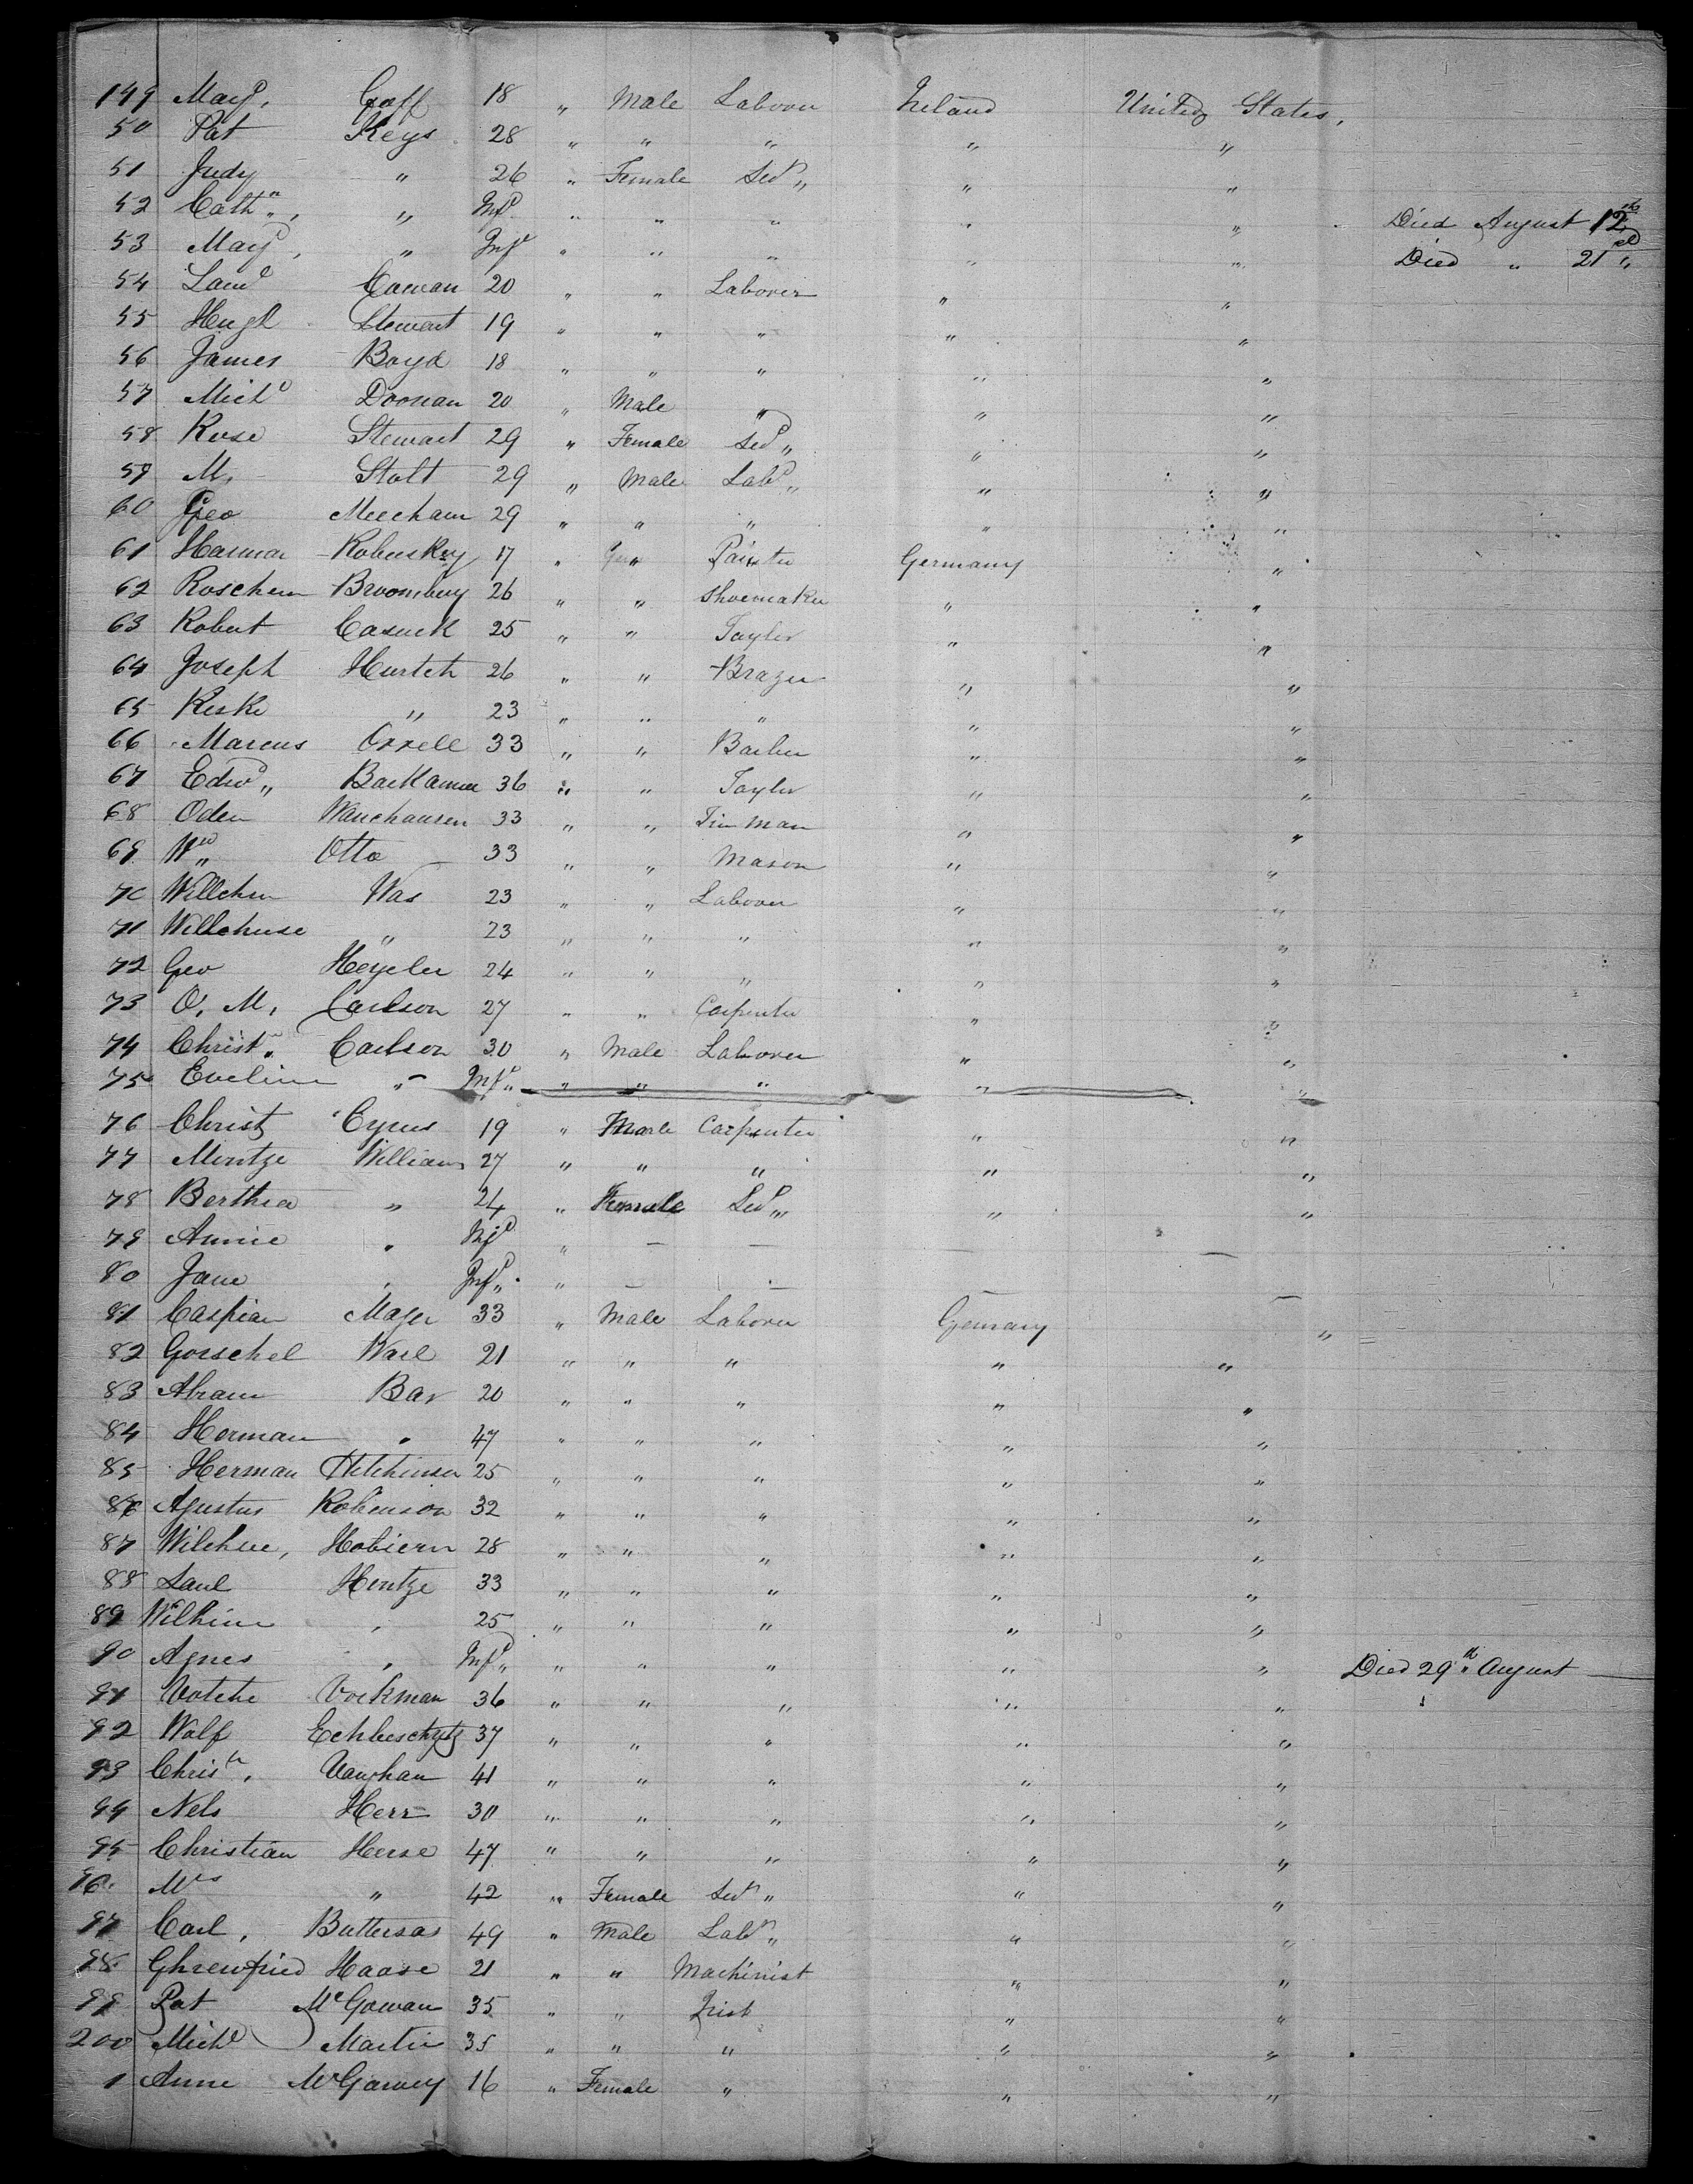 149 Mayd, Goff 18 " Male Laborer Ireland United States,
50 Pat Keys 28 " " " " "
51 Judy " 26 " Female Sed " " "
52 Cath", " Infd " " " " " Died August 12th
53 May, " Inft " " " " " Died " 21 "
54 Samd Cowan 20 " " Laborer " "
55 Hugh Stewart 19 " " " " "
56 James Boyd 18 " " " " "
57 Michl Doonan 20 " Male " " "
58 Rose Stewart 29 " Female Sed " " "
59 M. Stott 29 " Male Labr " " "
60 Geo Meecham 29 " " " " "
61 Harman Robenskey 17 " " Painter Germany "
62 Roschem Broomberg 26 " " Shoemaker " "
63 Robert Casuck 25 " " Tayler " "
64 Joseph Hurtch 26 " " Brazer " "
65 Reske " 23 " " " " "
66 Marcus Orrell 33 " " Barber " "
67 Edwd " 36 " " Tayler " "
68 Oden Wanchausen 33 " " Tin Man " "
69 Wm " Otto 33 " " Mason " "
70 Willehm Was 23 " " Laborer " "
71 Willehuse " 23 " " " " "
72 Geo Heyeler 24 " " " " "
73 O. M. Carlson 27 " " Carpenter " "
74 Christn Carlson 30 " Male Laborer " "
75 Eveline " Inft " " " " " "
76 Christ Cyrus 19 " Male Carpenter " "
77 Mintze Williams 27 " " " " "
78 Berthea " 24 " Female Sed " " "
79 Annie " Inft " — — — —
80 Jane " Inft " " — — — —
81 Caspian Mager 33 " Male Laborer Germany "
82 Gorschel Warl 21 " " " " "
83 Abram Bar 20 " " " " "
84 Herman " 47 " " " " "
85 Herman Hitchinson 25 " " " " "
86 Agustus Robenson 32 " " " " "
87 Wilchue, Hobiern 28 " " " " "
88 Saul Hintze 33 " " " " "
89 Wilhim " 25 " " " " "
90 Agnes " Inft " " " " " " Died 29th August
91 Votche Vockman 36 " " " " "
92 Wolf Echbeschytz 37 " " " " "
93 Christn, Vaughan 41 " " " " "
94 Nels Herr 30 " " " " "
95 Christian Herse 47 " " " " "
96 Mrs " 42 " Female Sed " " "
97 Carl, Buttersas 49 " Male Labr " " "
98 Ghrenfried Haase 21 " " Machinist " "
99 Pat McGowan 35 " " Irish " "
200 Michl Martin 35 " " " " "
1 Anne McGarvey 16 " Female " " "